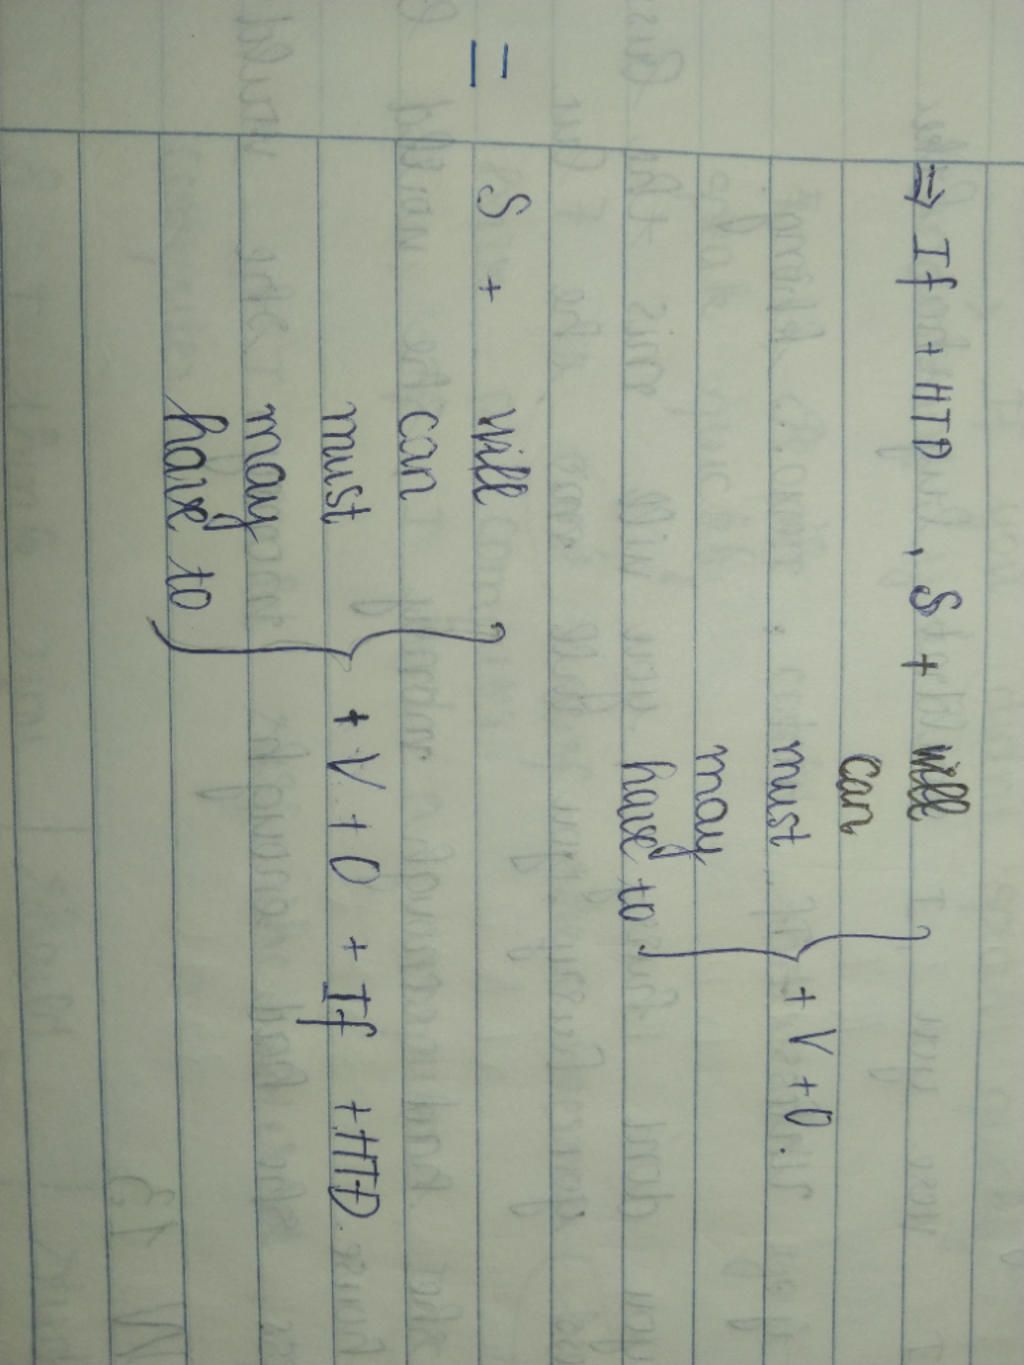 ⇒ If + HTĐ , S + will
can
must + V + O.
may
have to
= S + will
can
must + V + O + If + HTĐ.
may
have to